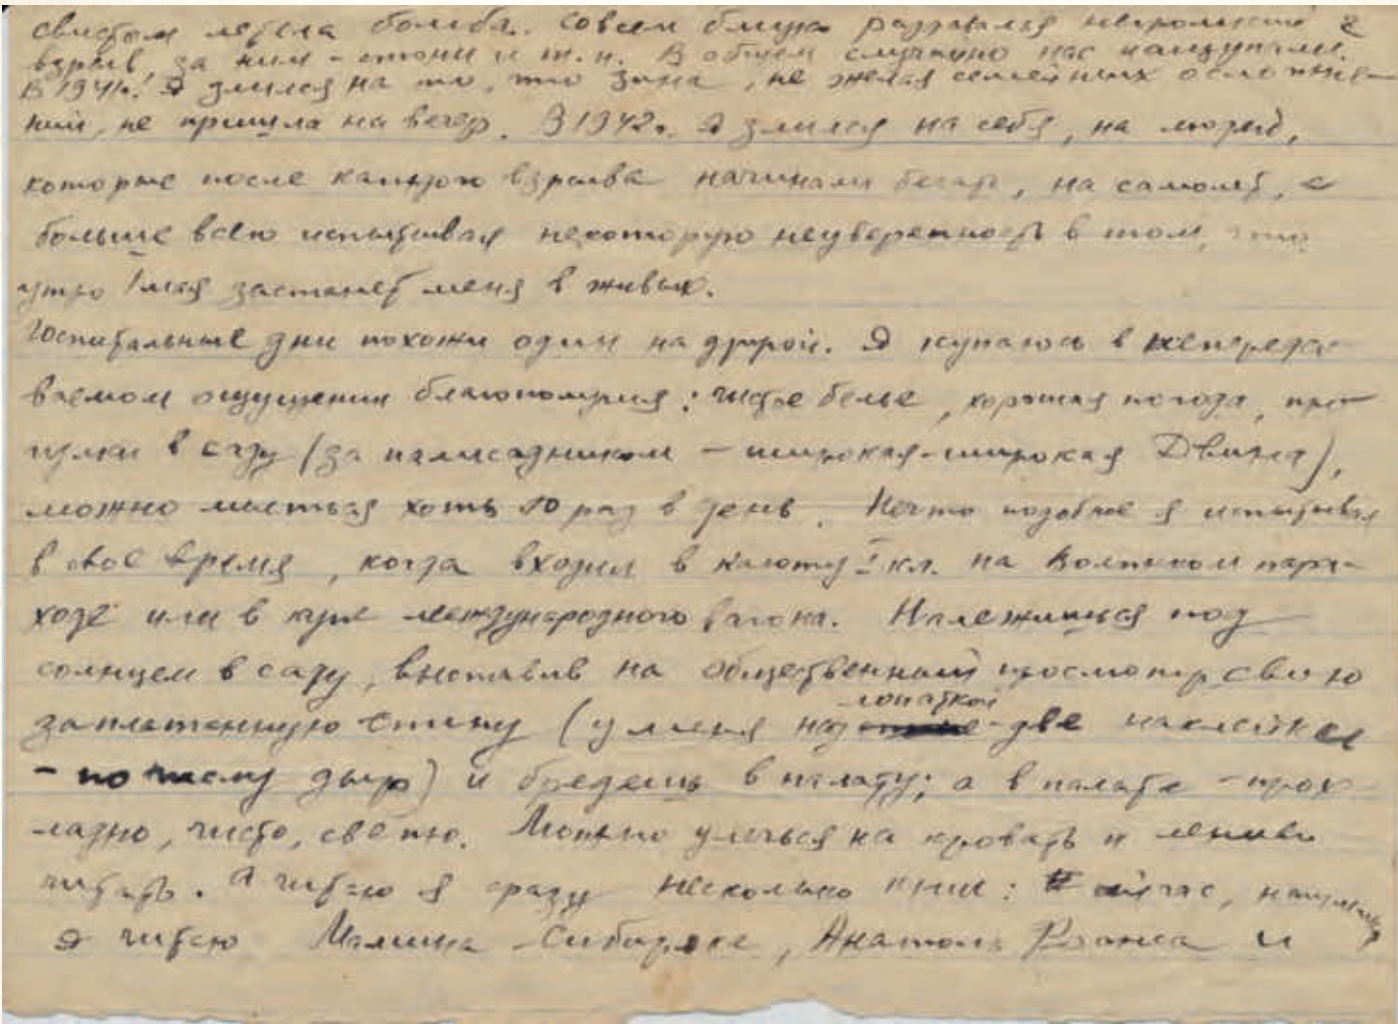 свистом летела бомба. Совсем близко раздавался негромкий
взрыв, за ним - стоны и т.п. В общем случайно нас нащупали.
В 1941г. я злился на то, что Зина, не желая семейных осложне-
ний, не пришла на вечер. В 1942г. я злился на себя, на людей,
которые после каждого взрыва начинали бегать, на самолет, а
больше всего испытывая некоторую неуверенность в том, что
утро 1 мая застанет меня в живых.
Госпитальные дни похожи один на другой. Я купаюсь в непереда-
ваемом ощущении благополучия: чистое белье, хорошая погода, про-
гулки в саду (за палисадником - широкая-широкая Двина),
можно мыться хоть 10 раз в день. Нечто подобное я испытывал
в свое время, когда входил в каюту I кл. на Волжском паро-
ходе или в купе международного вагона. Належишься под
солнцем в саду, выставив на общественный просмотр свою
заплатанную спину (у меня над лопаткой две наклейки
- по числу дыр) и бредешь в палату; а в палате - прох-
ладно, чисто, светло. Можно улечься на кровать и лениво
читать. А читаю я сразу несколько книг: сейчас, например
я читаю Мамина-Сибиряка, Анатоля Франса и